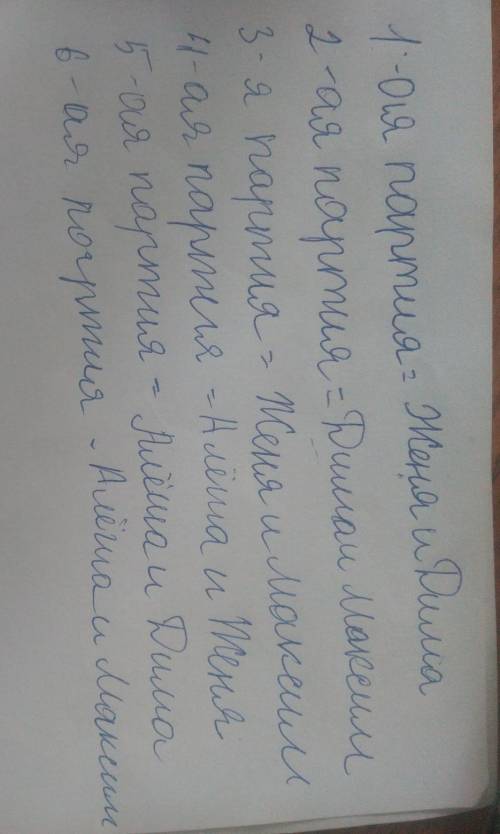 1-ая партия = Женя и Дима
2-ая партия = Дима и Максим
3-я партия = Женя и Максим
4-ая партия = Алёша и Женя
5-ая партия = Алёша и Дима
6-ая портия - Алёша и Максим